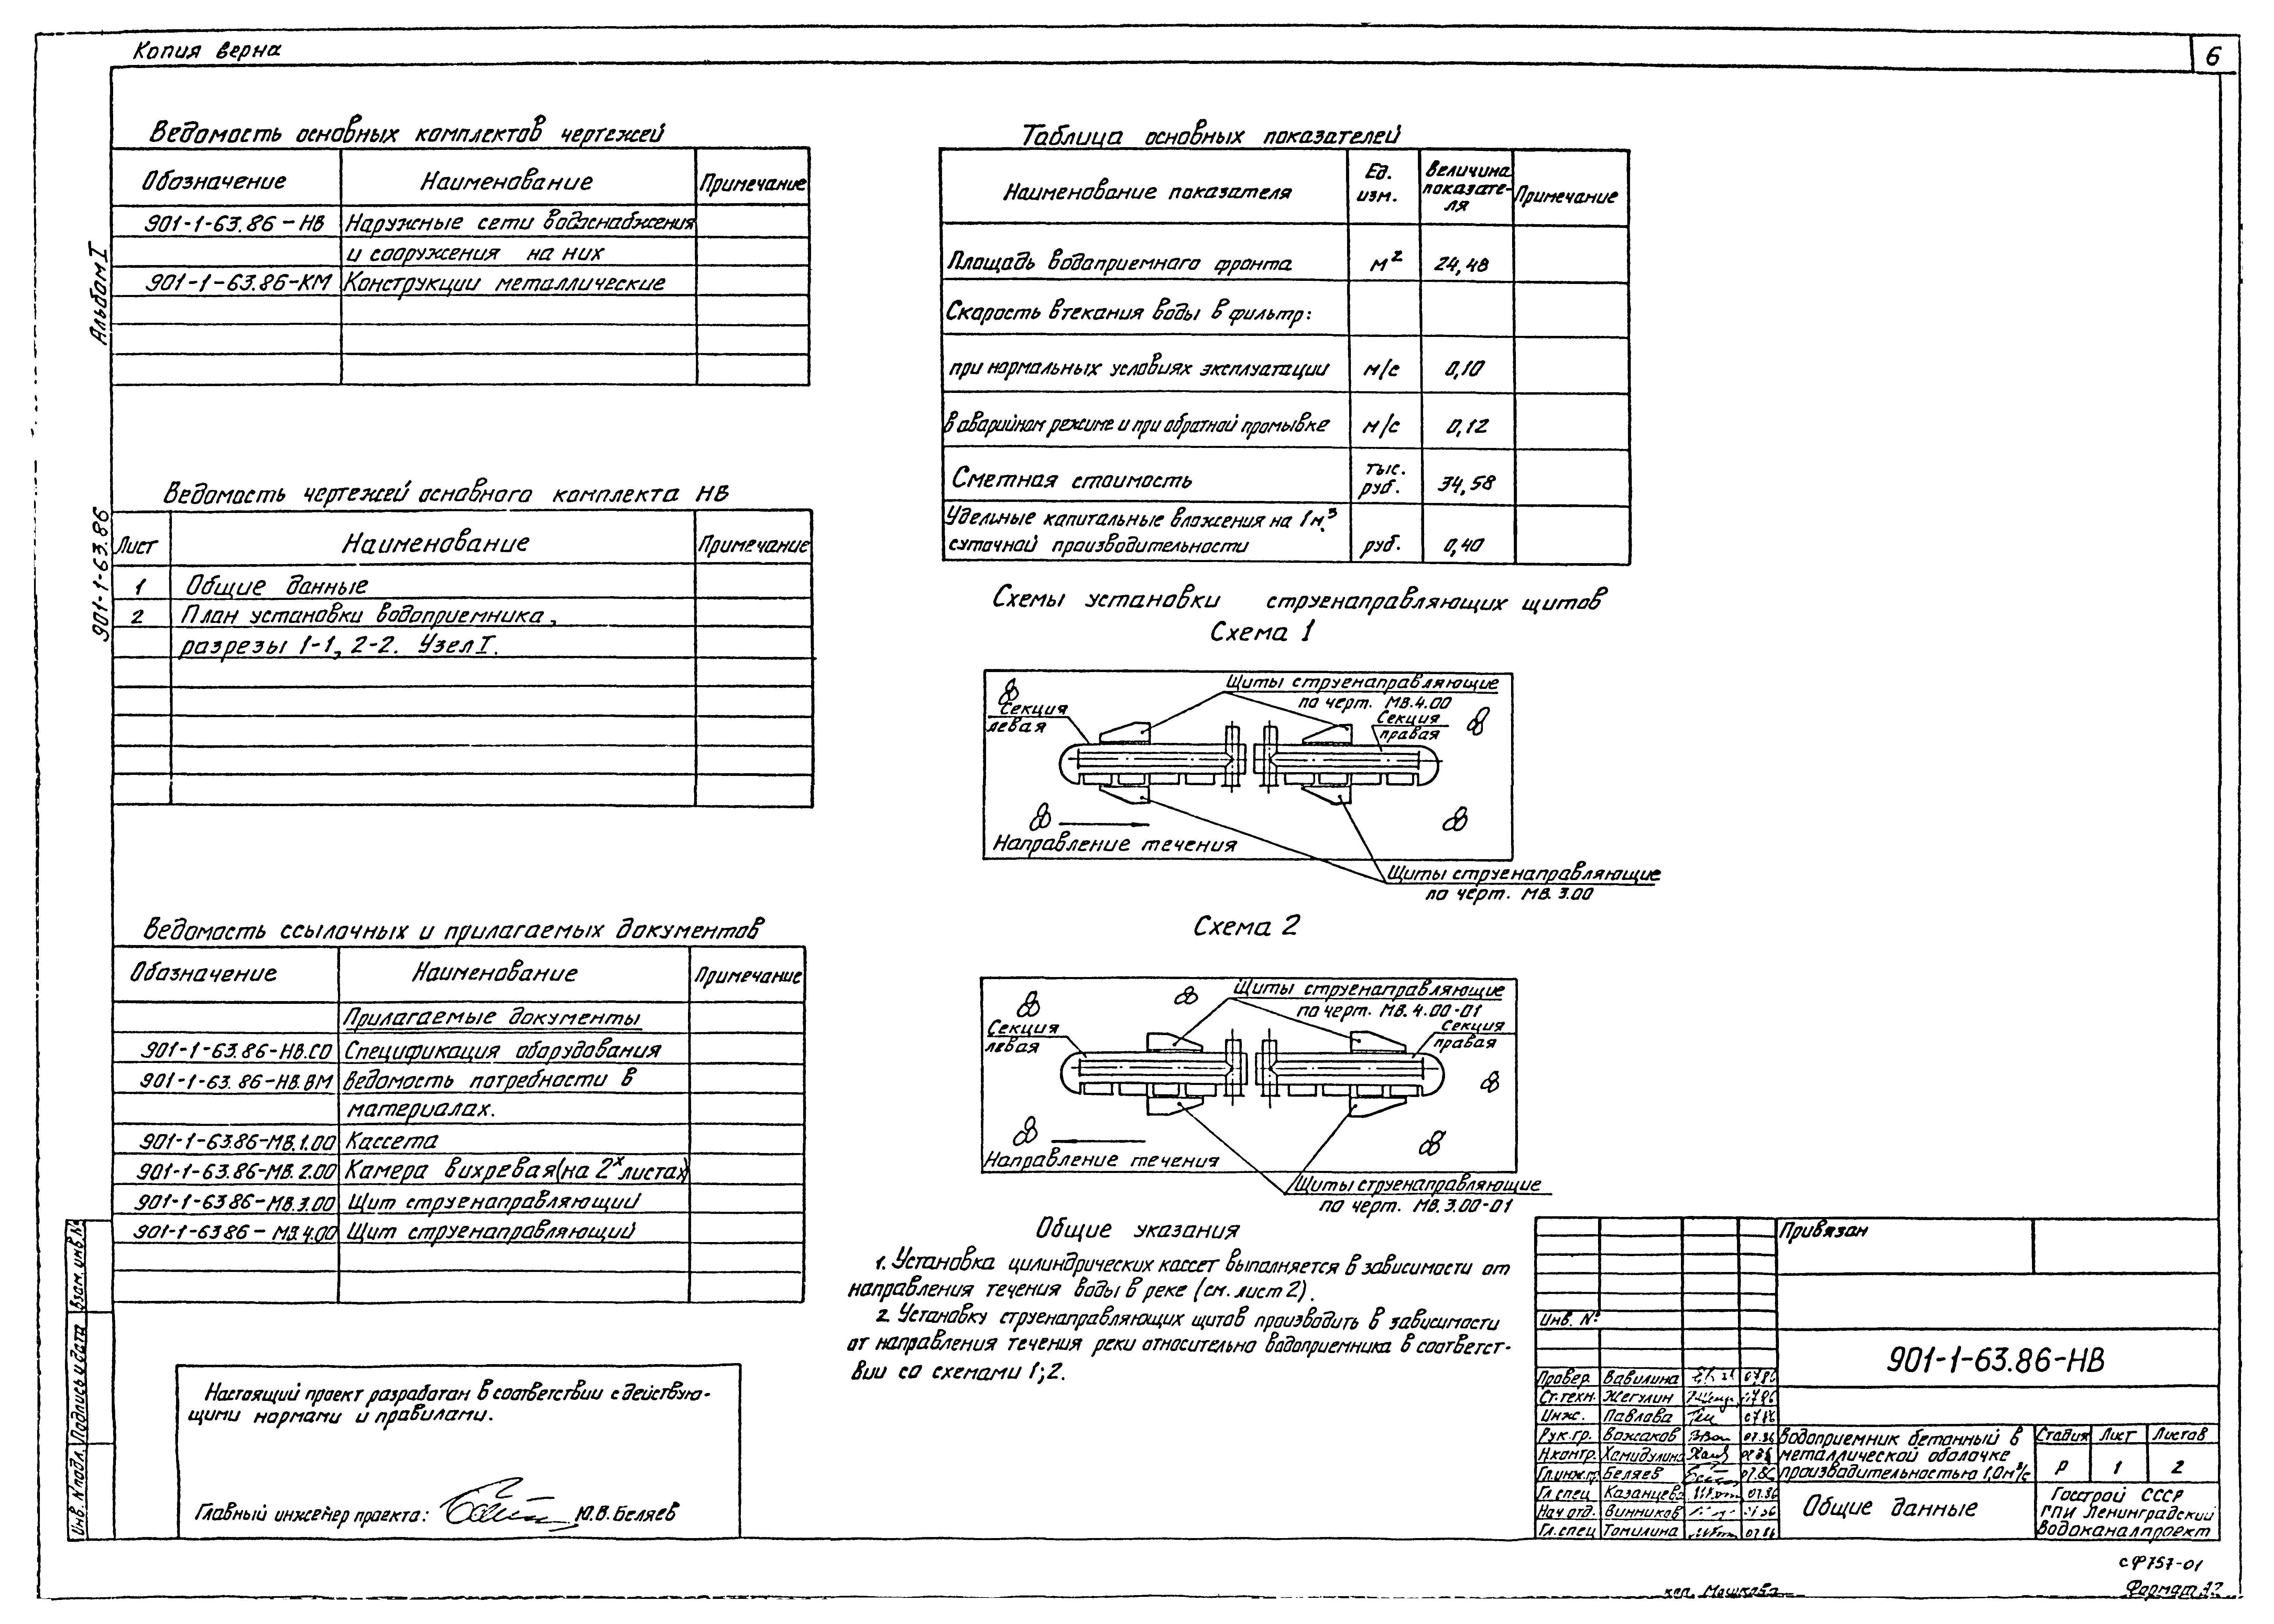 Копия верна
6
Альбом I
901-1-63.86
Ведомость основных комплектов чертежей
Обозначение Наименование Примечание
901-1-63.86-НВ Наружные сети водоснабжения
и сооружения на них
901-1-63.86-КМ Конструкции металлические
Ведомость чертежей основного комплекта НВ
Лист Наименование Примечание
1 Общие данные
2 План установки водоприемника,
разрезы 1-1, 2-2. Узел I.
Ведомость ссылочных и прилагаемых документов
Обозначение Наименование Примечание
Прилагаемые документы
901-1-63.86-НВ.СО Спецификация оборудования
901-1-63.86-НВ.ВМ Ведомость потребности в
материалах.
901-1-63.86-МВ.1.00 Кассета
901-1-63.86-МВ.2.00 Камера вихревая (на 2х листах)
901-1-63.86-МВ.3.00 Щит струенаправляющий
901-1-63.86-МВ.4.00 Щит струенаправляющий
Настоящий проект разработан в соответствии с действую-
щими нормами и правилами.
Главный инженер проекта: Ю.В.Беляев
Взам. инв. №
Подпись и дата
Инв. № подл.
Таблица основных показателей
Наименование показателя Ед. изм. Величина показате-ля Примечание
Площадь водоприемного фронта м² 24,48
Скорость втекания воды в фильтр:
при нормальных условиях эксплуатации м/с 0,10
в аварийном режиме и при обратной промывке м/с 0,12
Сметная стоимость тыс. руб. 34,58
Удельные капитальные вложения на 1м³
суточной производительности руб. 0,40
Схемы установки струенаправляющих щитов
Схема 1
Щиты струенаправляющие
по черт. МВ.4.00
Секция
левая
Секция
правая
Направление течения
Щиты струенаправляющие
по черт. МВ.3.00
Схема 2
Щиты струенаправляющие
по черт. МВ.4.00-01
Секция
левая
Секция
правая
Направление течения
Щиты струенаправляющие
по черт. МВ.3.00-01
Общие указания
1. Установка цилиндрических кассет выполняется в зависимости от
направления течения воды в реке (см. лист 2).
2. Установку струенаправляющих щитов производить в зависимости
от направления течения реки относительно водоприемника в соответст-
вии со схемами 1; 2.
Привязан
Инв. №
901-1-63.86-НВ
Провер. Вавилина 07.86
Ст.техн. Жегулин 07.86
Инж. Павлова 07.86
Рук.гр. Вожаков 07.86
Н.контр. Хамидулина 07.86
Гл.инж.пр. Беляев 07.86
Гл.спец Казанцева 07.86
Нач.отд. Винников
Гл.спец Томилина 07.86
Водоприемник бетонный в
металлической оболочке
производительностью 1,0м³/с
Стадия Лист Листов
Р 1 2
Общие данные
Госстрой СССР
ГПИ Ленинградский
Водоканалпроект
сф757-01
кол. Машкова
Формат А2